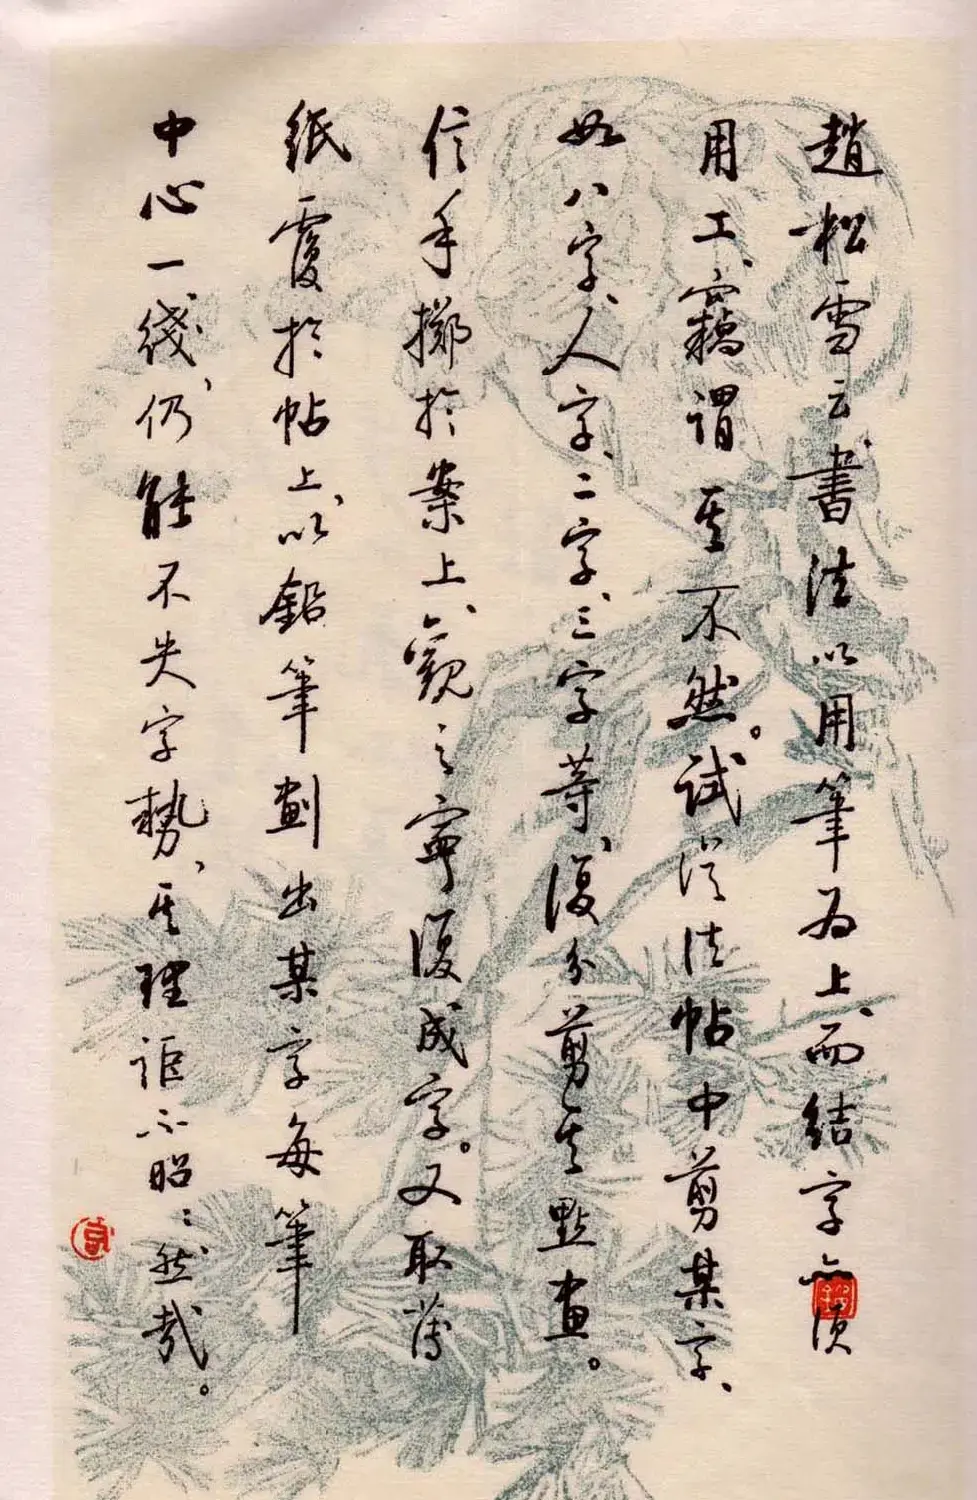 趙松雪云、書法以用筆為上、而結字亦須
用工、竊謂其不然。試從法帖中剪某字、
如八字、人字、二字、三字等、復分剪其點畫。
信手擲於案上、觀之寧復成字。又取薄
紙覆於帖上、以鉛筆劃出某字每筆
中心一綫、仍能不失字勢、其理詎不昭〻然哉。